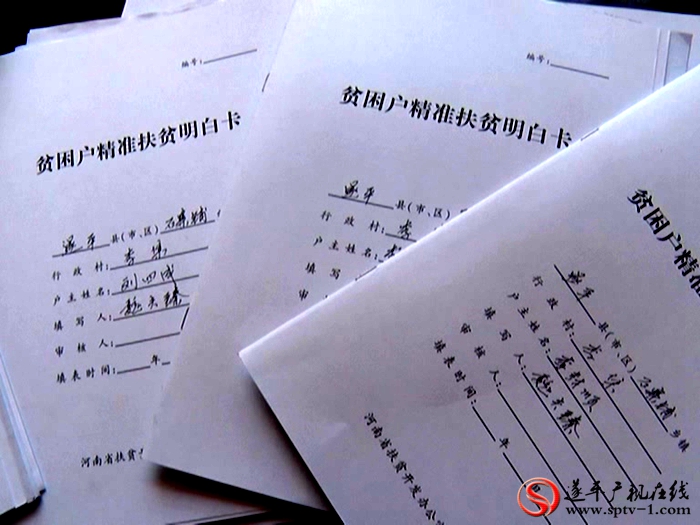 编号：
贫困户精准扶贫明白卡
遂平县(市、区)石寨铺
行政村：李
户主姓名：刘四成
填写人：
审核人：
填表时间：年
河南省扶贫开
编号：
贫困户精准扶贫明白卡
遂平县(市、区)
行政村：李
户主姓名：
填写
审
贫困户精准
遂平县(市、区)石寨铺乡镇
行政村：李
户主姓名：李
填写人：
审核人：
填表时间：年
河南省扶贫开发办公
遂平广视在线
www.sptv-1.com